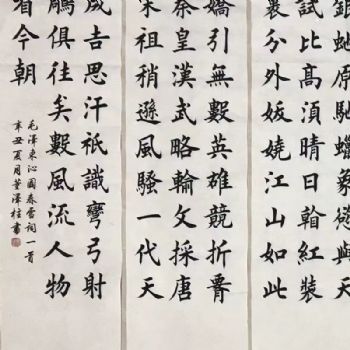 銀虵原馳蠟象欲與天
試比高須晴日翰紅裝
裹分外妖嬈江山如此
嬌引無數英雄競折腰
秦皇漢武略輸文採唐
宋祖稍遜風騷一代天
成吉思汗祇識彎弓射
鵰俱往矣數風流人物
看今朝
毛澤東沁園春雪詞一首
辛丑夏月董澤柱書